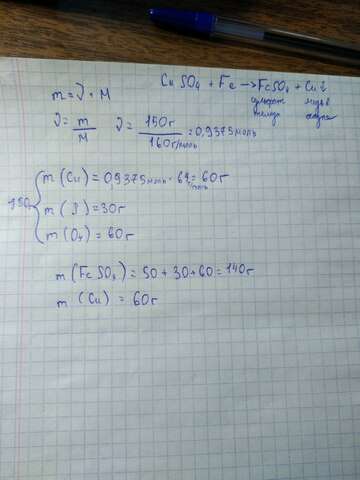 CuSO₄ + Fe → FeSO₄ + Cu↓
сульфат железа медь в осадке
m = ν · M
ν = m/M ν = 150г/160г/моль = 0,9375 моль
150 { m (Cu) = 0,9375 моль · 64 г/моль = 60г
m (S) = 30г
m (O₄) = 60г
m (FeSO₄) = 50 + 30 + 60 = 140г
m (Cu) = 60г